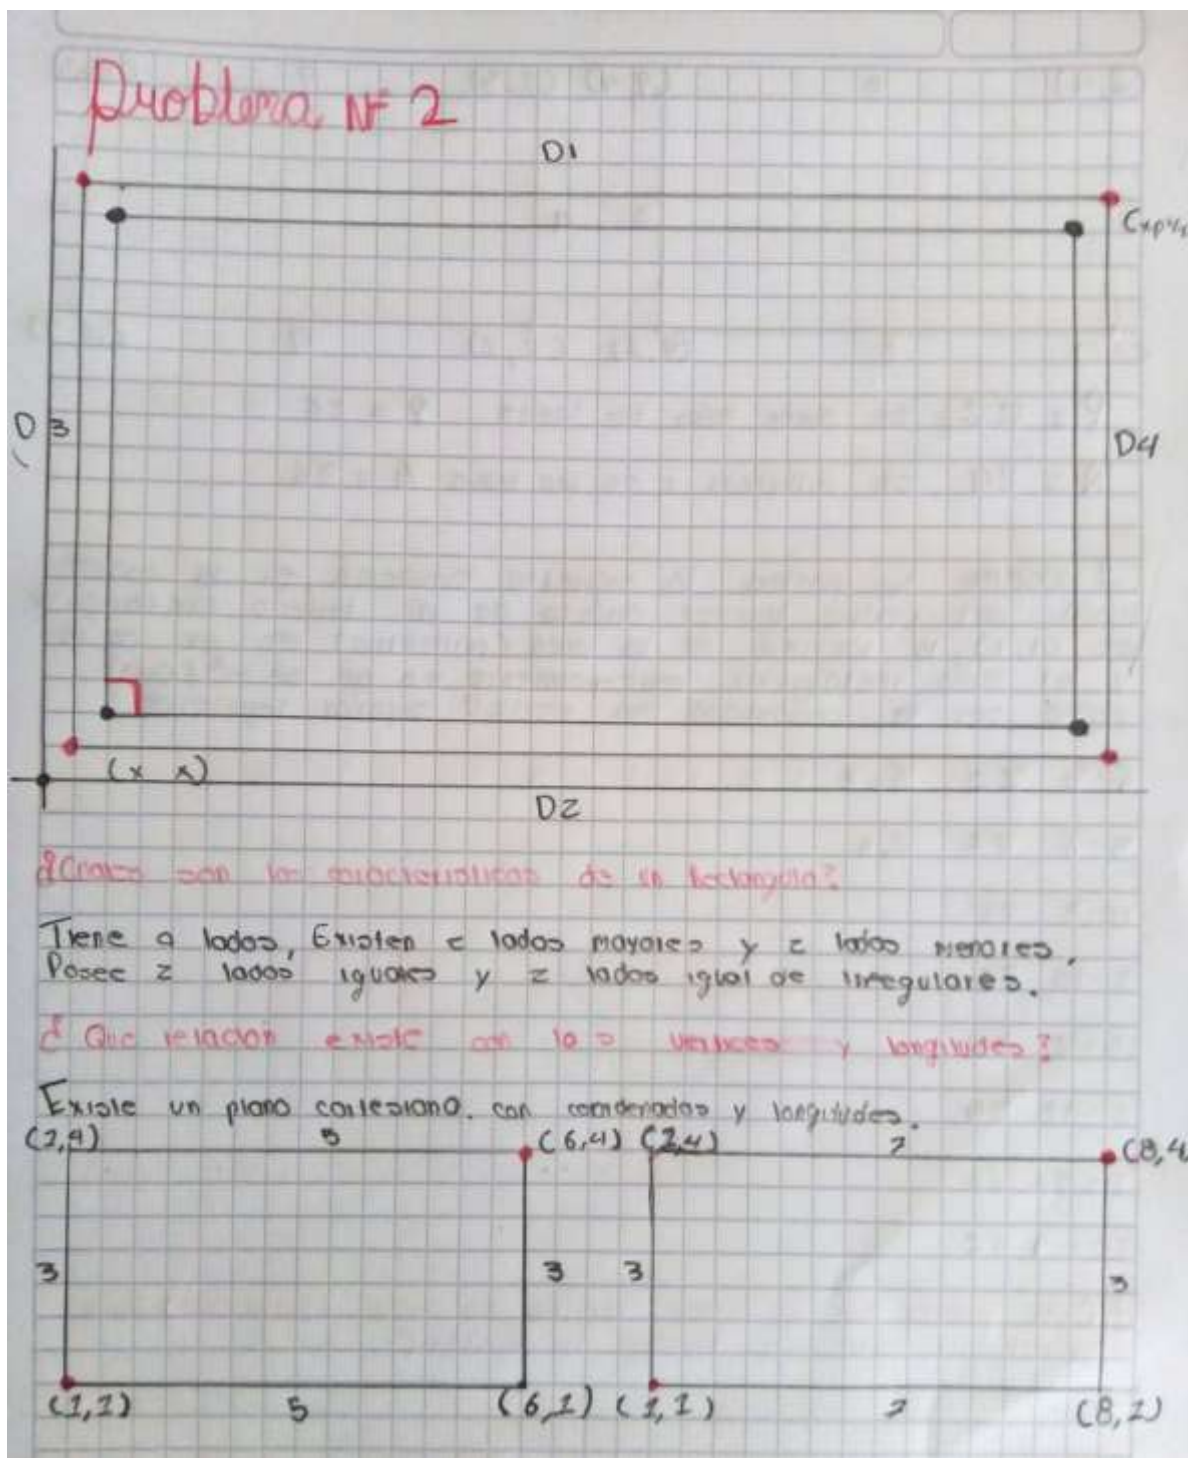 Problema N° 2
D1
D 3
D4
(x x)
D2
¿Cuales son las caracteristicas de un Rectangulo?
Tiene 4 lados, Existen 2 lados mayores y 2 lados menores,
Posee 2 lados iguales y 2 lados igual de irregulares.
¿ Que relacion existe con los vertices y longitudes?
Existe un plano cartesiano. con coordenadas y longitudes.
(1,4) 5 (6,4) (1,4) 7 (8,4
3 3 3 3
(1,1) 5 (6,1) (1,1) 7 (8,1)